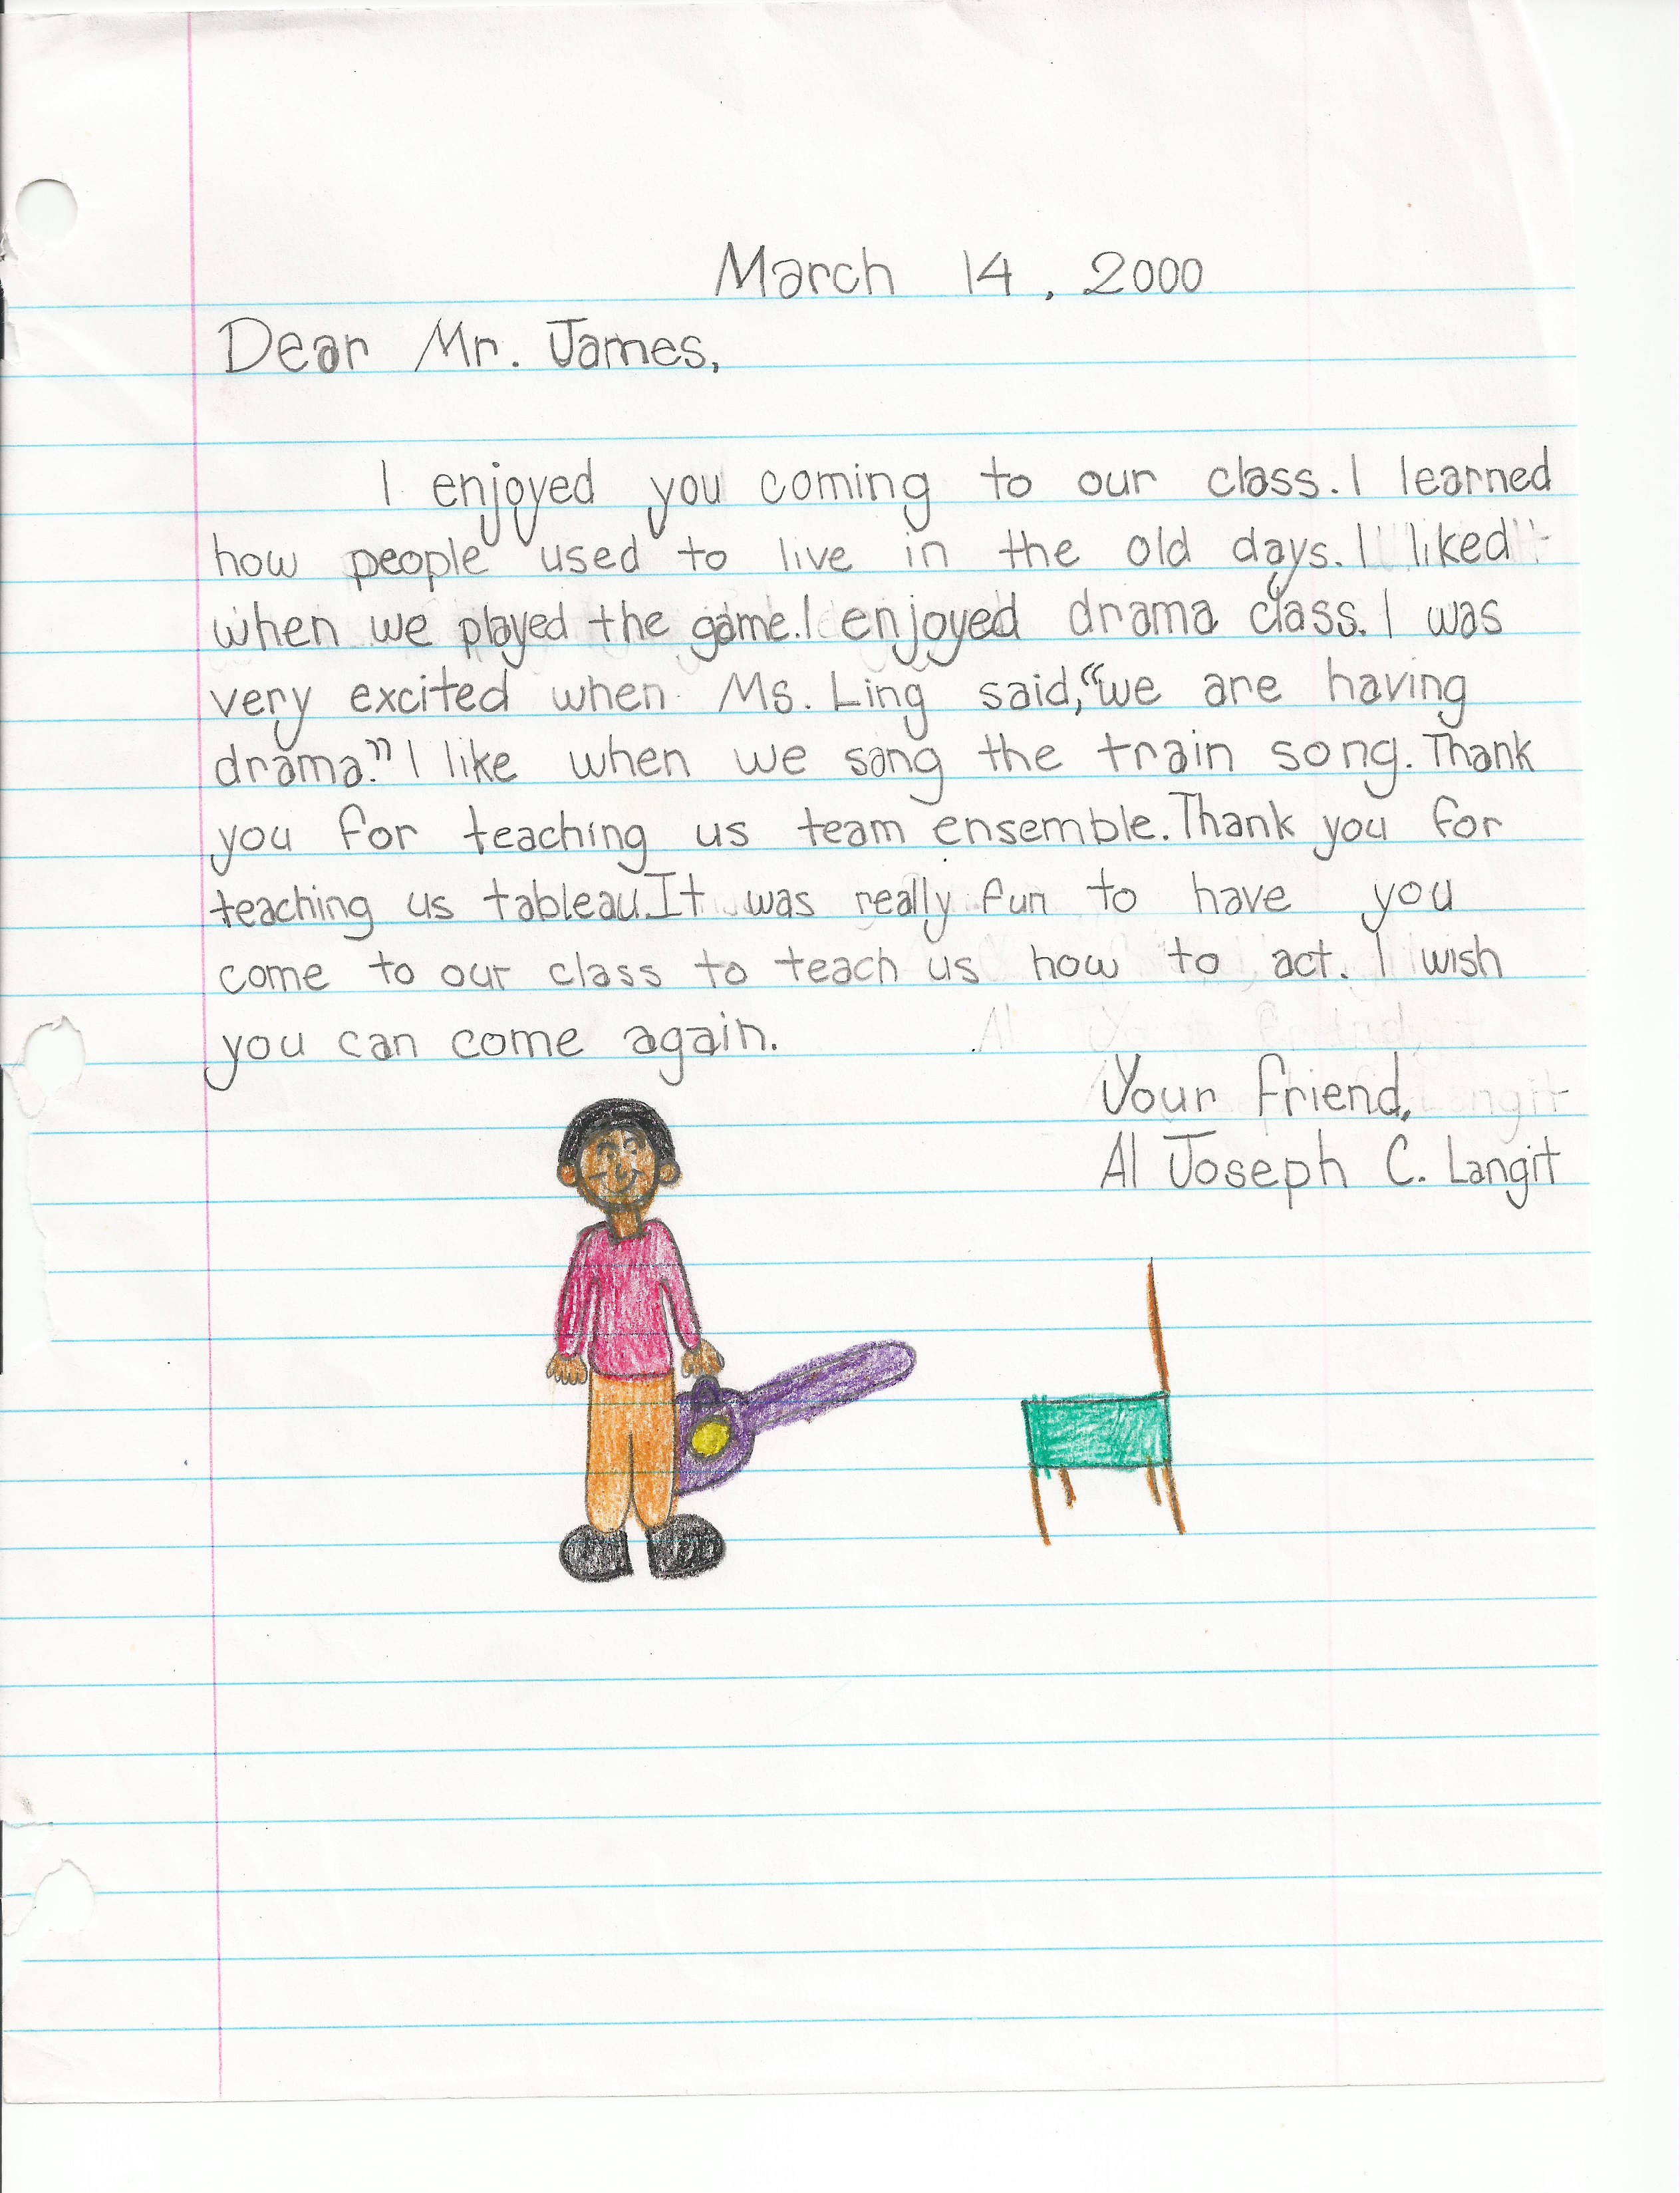 March 14, 2000
Dear Mr. James,
I enjoyed you coming to our class. I learned
how people used to live in the old days. I liked
when we played the game. I enjoyed drama class. I was
very excited when Ms. Ling said, "we are having
drama." I like when we sang the train song. Thank
you for teaching us team ensemble. Thank you for
teaching us tableau. It was really fun to have you
come to our class to teach us how to act. I wish
you can come again.
Your friend,
Al Joseph C. Langit